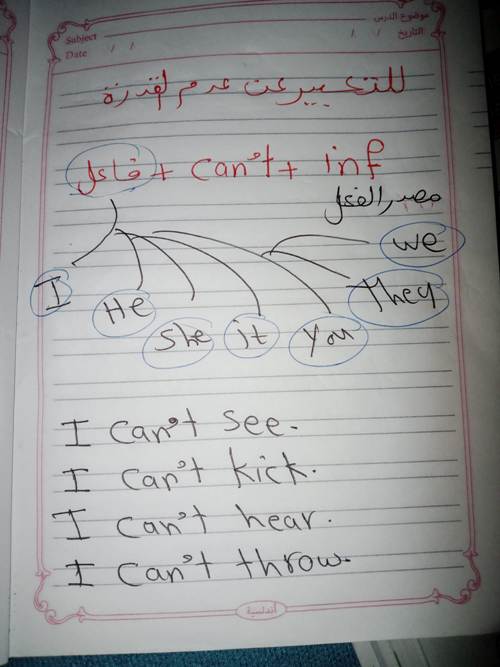 موضوع الدرس
Subject
التاريخ / /
Date / /
للتعبير عن عدم لقدرة
فاعل + can't + inf
مصدر الفعل
we
I
He
they
she
it
you
I can't see.
I can't kick.
I can't hear.
I can't throw.
أندلسية